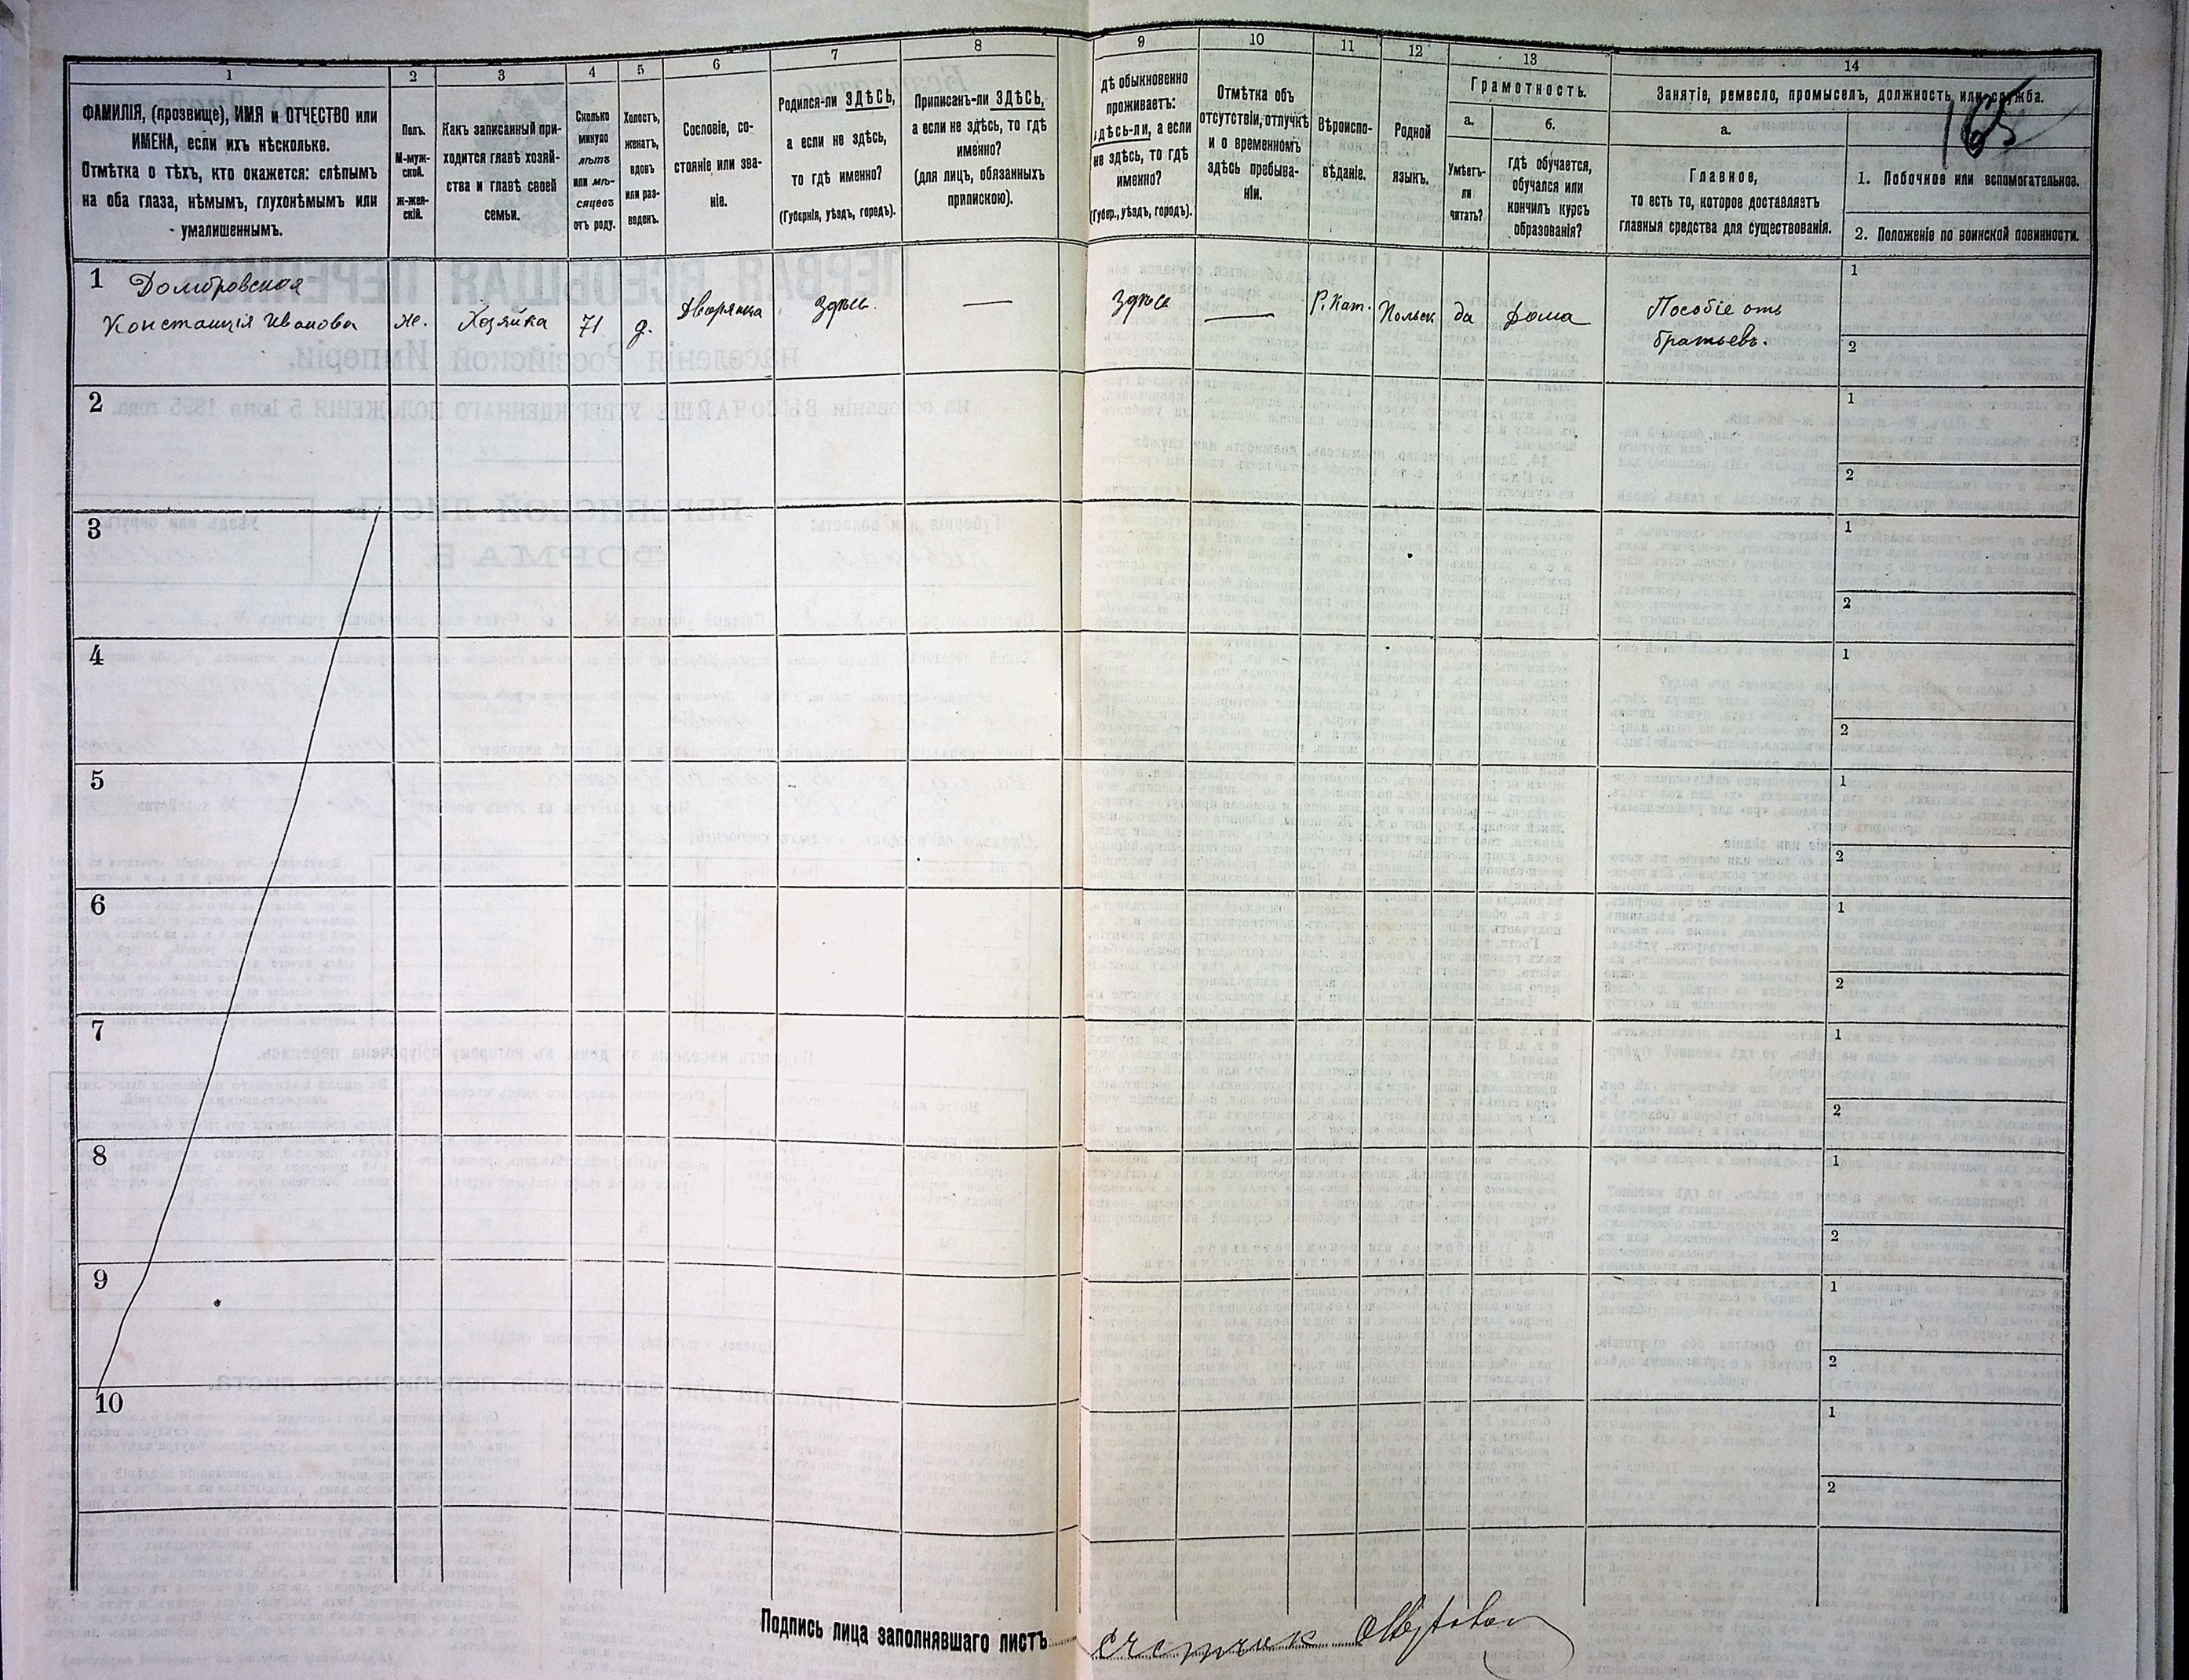 1 2 3 4 5 6 7 8 9 10 11 12 13 14
165
ФАМИЛІЯ, (прозвище), ИМЯ и ОТЧЕСТВО или
ИМЕНА, если ихъ нѣсколько.
Отмѣтка о тѣхъ, кто окажется: слѣпымъ
на оба глаза, нѣмымъ, глухонѣмымъ или
умалишеннымъ.
Полъ.
М-муж-
ской.
Ж-жен-
скій.
Какъ записанный при-
ходится главѣ хозяй-
ства и главѣ своей
семьи.
Сколько
минуло
лѣтъ
или мѣ-
сяцевъ
отъ роду.
Холостъ,
женатъ,
вдовъ
или раз-
веденъ.
Сословіе, со-
стояніе или зва-
ніе.
Родился-ли ЗДѢСЬ,
а если не здѣсь,
то гдѣ именно?
(Губернія, уѣздъ, городъ).
Приписанъ-ли ЗДѢСЬ,
а если не здѣсь, то гдѣ
именно?
(для лицъ, обязанныхъ
припискою).
дѣ обыкновенно
проживаетъ:
здѣсь-ли, а если
не здѣсь, то гдѣ
именно?
(Губер., уѣздъ, городъ).
Отмѣтка объ
отсутствіи, отлучкѣ
и о временномъ
здѣсь пребыва-
ніи.
Вѣроиспо-
вѣданіе.
Родной
языкъ.
Грамотность.
а.
Умѣетъ-
ли
читать?
б.
гдѣ обучается,
обучался или
кончилъ курсъ
образованія?
Занятіе, ремесло, промыселъ, должность или служба.
а.
Главное,
то есть то, которое доставляетъ
главныя средства для существованія.
1. Побочное или вспомогательное.
2. Положеніе по воинской повинности.
1 Домбровская
Констанція Иванова
же.
Хозяйка
71
д.
Дворянка
Здѣсь
—
Здѣсь
—
Р. Кат.
Польск
да
дома
Пособіе отъ
братьевъ.
1
2
2
1
2
3
1
2
4
1
2
5
1
2
6
1
2
7
1
2
8
1
2
9
1
2
10
1
2
Подпись лица заполнявшаго листъ счетчик